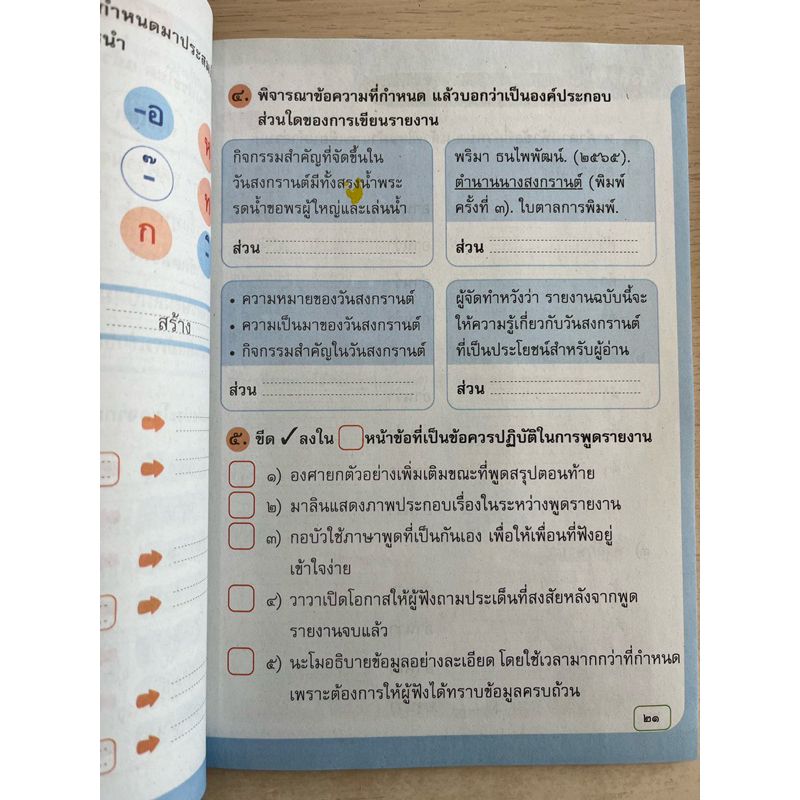 กำหนดมาประสม
นำ
-อ
ก
สร้าง
๔. พิจารณาข้อความที่กำหนด แล้วบอกว่าเป็นองค์ประกอบ
ส่วนใดของการเขียนรายงาน
กิจกรรมสำคัญที่จัดขึ้นใน
วันสงกรานต์มีทั้งสรงน้ำพระ
รดน้ำขอพรผู้ใหญ่และเล่นน้ำ
ส่วน
พริมา ธนไพพัฒน์. (๒๕๖๕).
ตำนานนางสงกรานต์ (พิมพ์
ครั้งที่ ๓). ใบตาลการพิมพ์.
ส่วน
• ความหมายของวันสงกรานต์
• ความเป็นมาของวันสงกรานต์
• กิจกรรมสำคัญในวันสงกรานต์
ส่วน
ผู้จัดทำหวังว่า รายงานฉบับนี้จะ
ให้ความรู้เกี่ยวกับวันสงกรานต์
ที่เป็นประโยชน์สำหรับผู้อ่าน
ส่วน
๕. ขีด ✓ ลงใน หน้าข้อที่เป็นข้อควรปฏิบัติในการพูดรายงาน
๑) องศายกตัวอย่างเพิ่มเติมขณะที่พูดสรุปตอนท้าย
๒) มาลินแสดงภาพประกอบเรื่องในระหว่างพูดรายงาน
๓) กอบัวใช้ภาษาพูดที่เป็นกันเอง เพื่อให้เพื่อนที่ฟังอยู่
เข้าใจง่าย
๔) วาวาเปิดโอกาสให้ผู้ฟังถามประเด็นที่สงสัยหลังจากพูด
รายงานจบแล้ว
๕) นะโมอธิบายข้อมูลอย่างละเอียด โดยใช้เวลามากกว่าที่กำหนด
เพราะต้องการให้ผู้ฟังได้ทราบข้อมูลครบถ้วน
๒๑